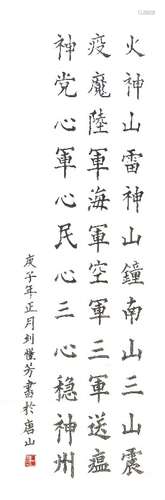 火神山雷神山鐘南山三山震
疫魔陸軍海軍空軍三軍送瘟
神党心軍心民心三心穏神州
庚子年正月刘懂芳書於唐山